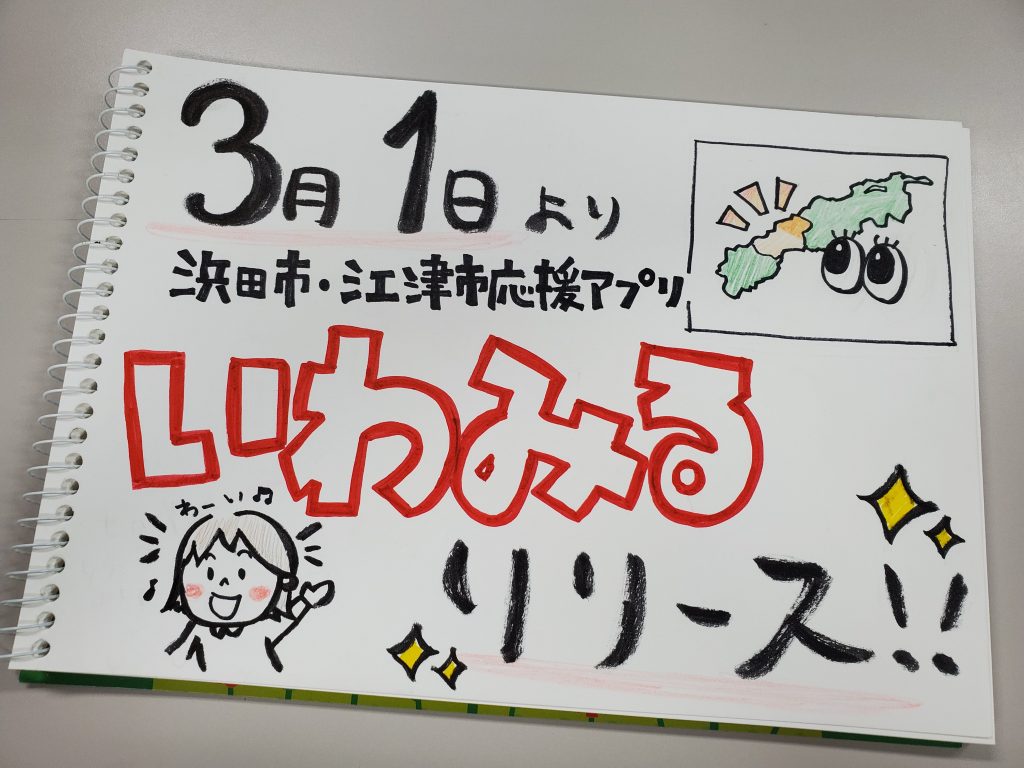 3月1日より
浜田市・江津市応援アプリ
いわみる
わーい♫
リリース!!